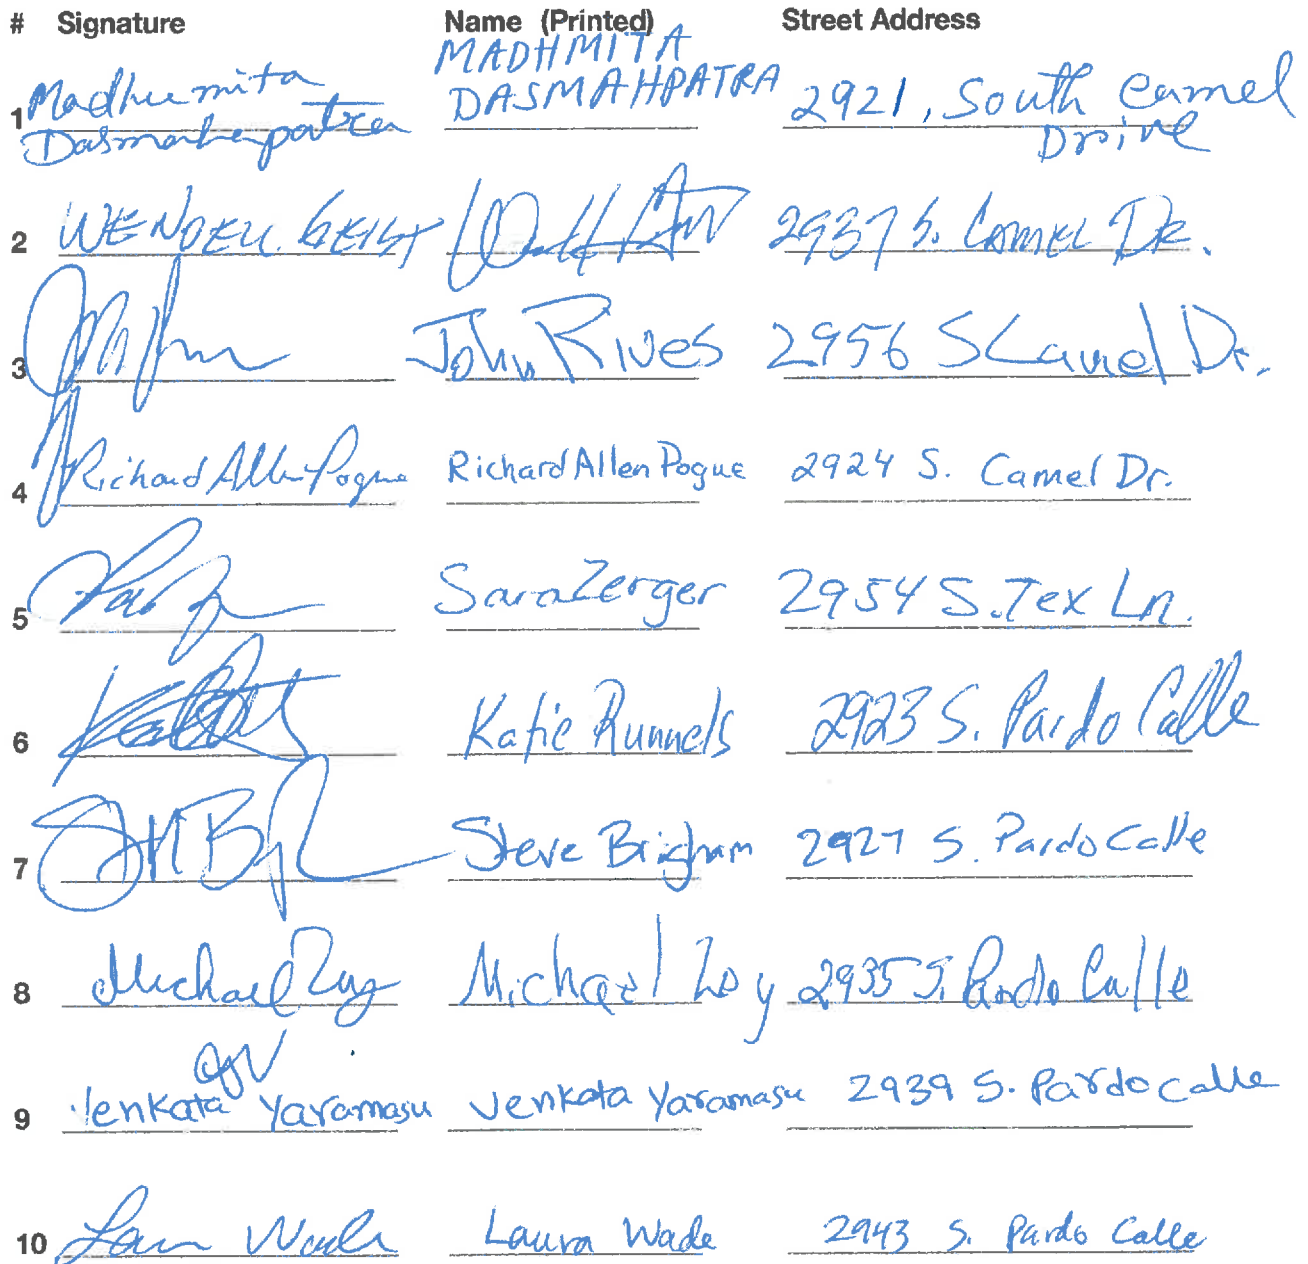 # Signature Name (Printed) Street Address
1 Madhumita Dasmahapatra MADHMITA DASMAHPATRA 2921, South Camel Drive
2 WENDELL GEIST 2937 S. Camel Dr.
3 John Rives 2956 S Camel Dr.
4 Richard Allen Pogue Richard Allen Pogue 2924 S. Camel Dr.
5 Sara Zerger 2954 S. Tex Ln.
6 Katie Runnels 2923 S. Pardo Calle
7 Steve Brigham 2927 S. Pardo Calle
8 Michael Michael 2935 S. Pardo Calle
9 Venkata Yaramasu Venkata Yaramasu 2939 S. Pardo Calle
10 Laura Wade Laura Wade 2943 S. Pardo Calle